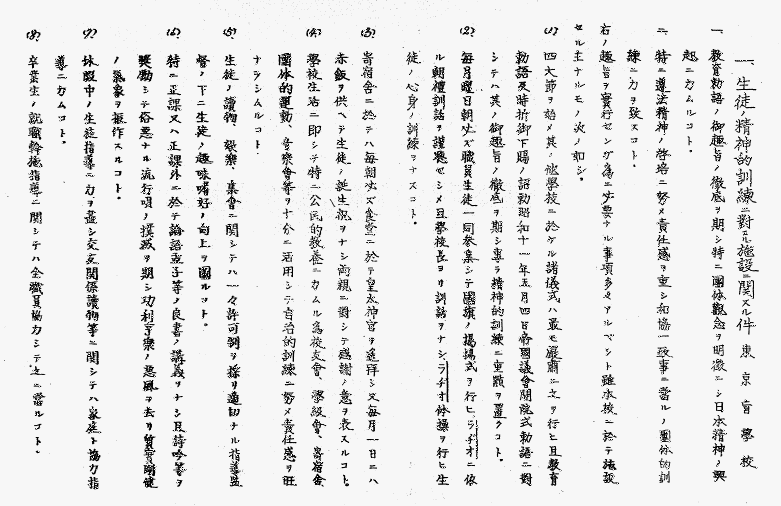 一、生徒ノ精神的訓練ニ対スル施設ニ関スル件 東京盲学校
一、教育勅語ノ御趣旨ノ徹底ヲ期シ特ニ國体観念ヲ明徴ニシ日本精神ノ興
起ニカムルコト．
二、特ニ遵法精神ノ啓培ニ努メ責任感ヲ重シ和協一致事ニ當ルノ團体的訓
練ニ力ヲ致スコト．
右ノ趣旨ヲ實行センガ為ニ必要ナル事項多々アルベシト雖本校ニ於テ施設
セル主ナルモノ次ノ如シ．
(1) 四大節ヲ始メ其ノ他學校ニ於ケル諸儀式ハ最モ厳粛ニ之ヲ行ヒ且教育
勅語及時折御下賜ノ詔勅昭和十一年五月四日帝國議會開院式勅語ニ對
シテハ其ノ御趣旨ノ徹底ヲ期シ専ラ精神的訓練ニ重點ヲ置クコト．
(2) 毎月曜日朝必ズ職員生徒一同参集シテ國旗ノ掲揚式ヲ行ヒ、ラヂオニ依
ル朝禮訓話ヲ謹聴セシメ且學校長ヨリ訓話ヲナシラヂオ体操ヲ行ヒ生
徒ノ心身ノ訓練ヲナスコト．
(3) 寄宿舎ニ於テハ毎朝必ズ食堂ニ於テ皇太神宮ヲ遥拝シ又毎月一日ニハ
赤飯ヲ供ヘテ生徒ノ誕生祝ヲナシ両親ニ對シテ感謝ノ意ヲ表スルコト．
(4) 學校生活ニ即シテ特ニ公民的教養ニカムル為校友會、學級會、寄宿舎
團体的運動、音樂會等ヲ十分ニ活用シテ自治的訓練ニ努メ責任感ヲ旺
ナラシムルコト．
(5) 生徒ノ讀物、娯樂、集會ニ関シテハ一々許可制ヲ採リ適切ナル指導監
督ノ下ニ生徒ノ趣味嗜好ノ向上ヲ圖ルコト．
(6) 特ニ正課又ハ正課外ニ於テ論語孟子等ノ良書ノ講義ヲナシ且詩吟等ヲ
奨励シテ俗悪ナル流行唄ノ撲滅ヲ期シ功利享樂ノ悪風ヲ去リ質實剛健
ノ氣象ヲ振作スルコト．
(7) 休暇中ノ生徒指導ニ力ヲ盡シ交友関係讀物等ニ関シテハ家庭ト協力指
導ニカムコト．
(8) 卒業生ノ就職斡旋指導ニ関シテハ全職員協力シテ之ニ當ルコト．